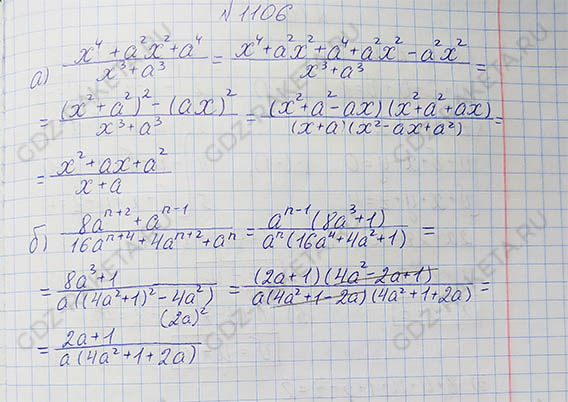 №1106
а) (x⁴ + a²x² + a⁴)/(x³ + a³) = (x⁴ + a²x² + a⁴ + a²x² - a²x²)/(x³ + a³) =
= ((x² + a²)² - (ax)²)/(x³ + a³) = ((x² + a² - ax)(x² + a² + ax))/((x + a)(x² - ax + a²)) =
= (x² + ax + a²)/(x + a)
б) (8aⁿ⁺² + aⁿ⁻¹)/(16aⁿ⁺⁴ + 4aⁿ⁺² + aⁿ) = (aⁿ⁻¹(8a³ + 1))/(aⁿ(16a⁴ + 4a² + 1)) =
= (8a³ + 1)/(a((4a² + 1)² - 4a²)) = ((2a + 1)(4a² - 2a + 1))/(a(4a² + 1 - 2a)(4a² + 1 + 2a)) =
(2a)²
= (2a + 1)/(a(4a² + 1 + 2a))
GDZ-RAKETA.RU